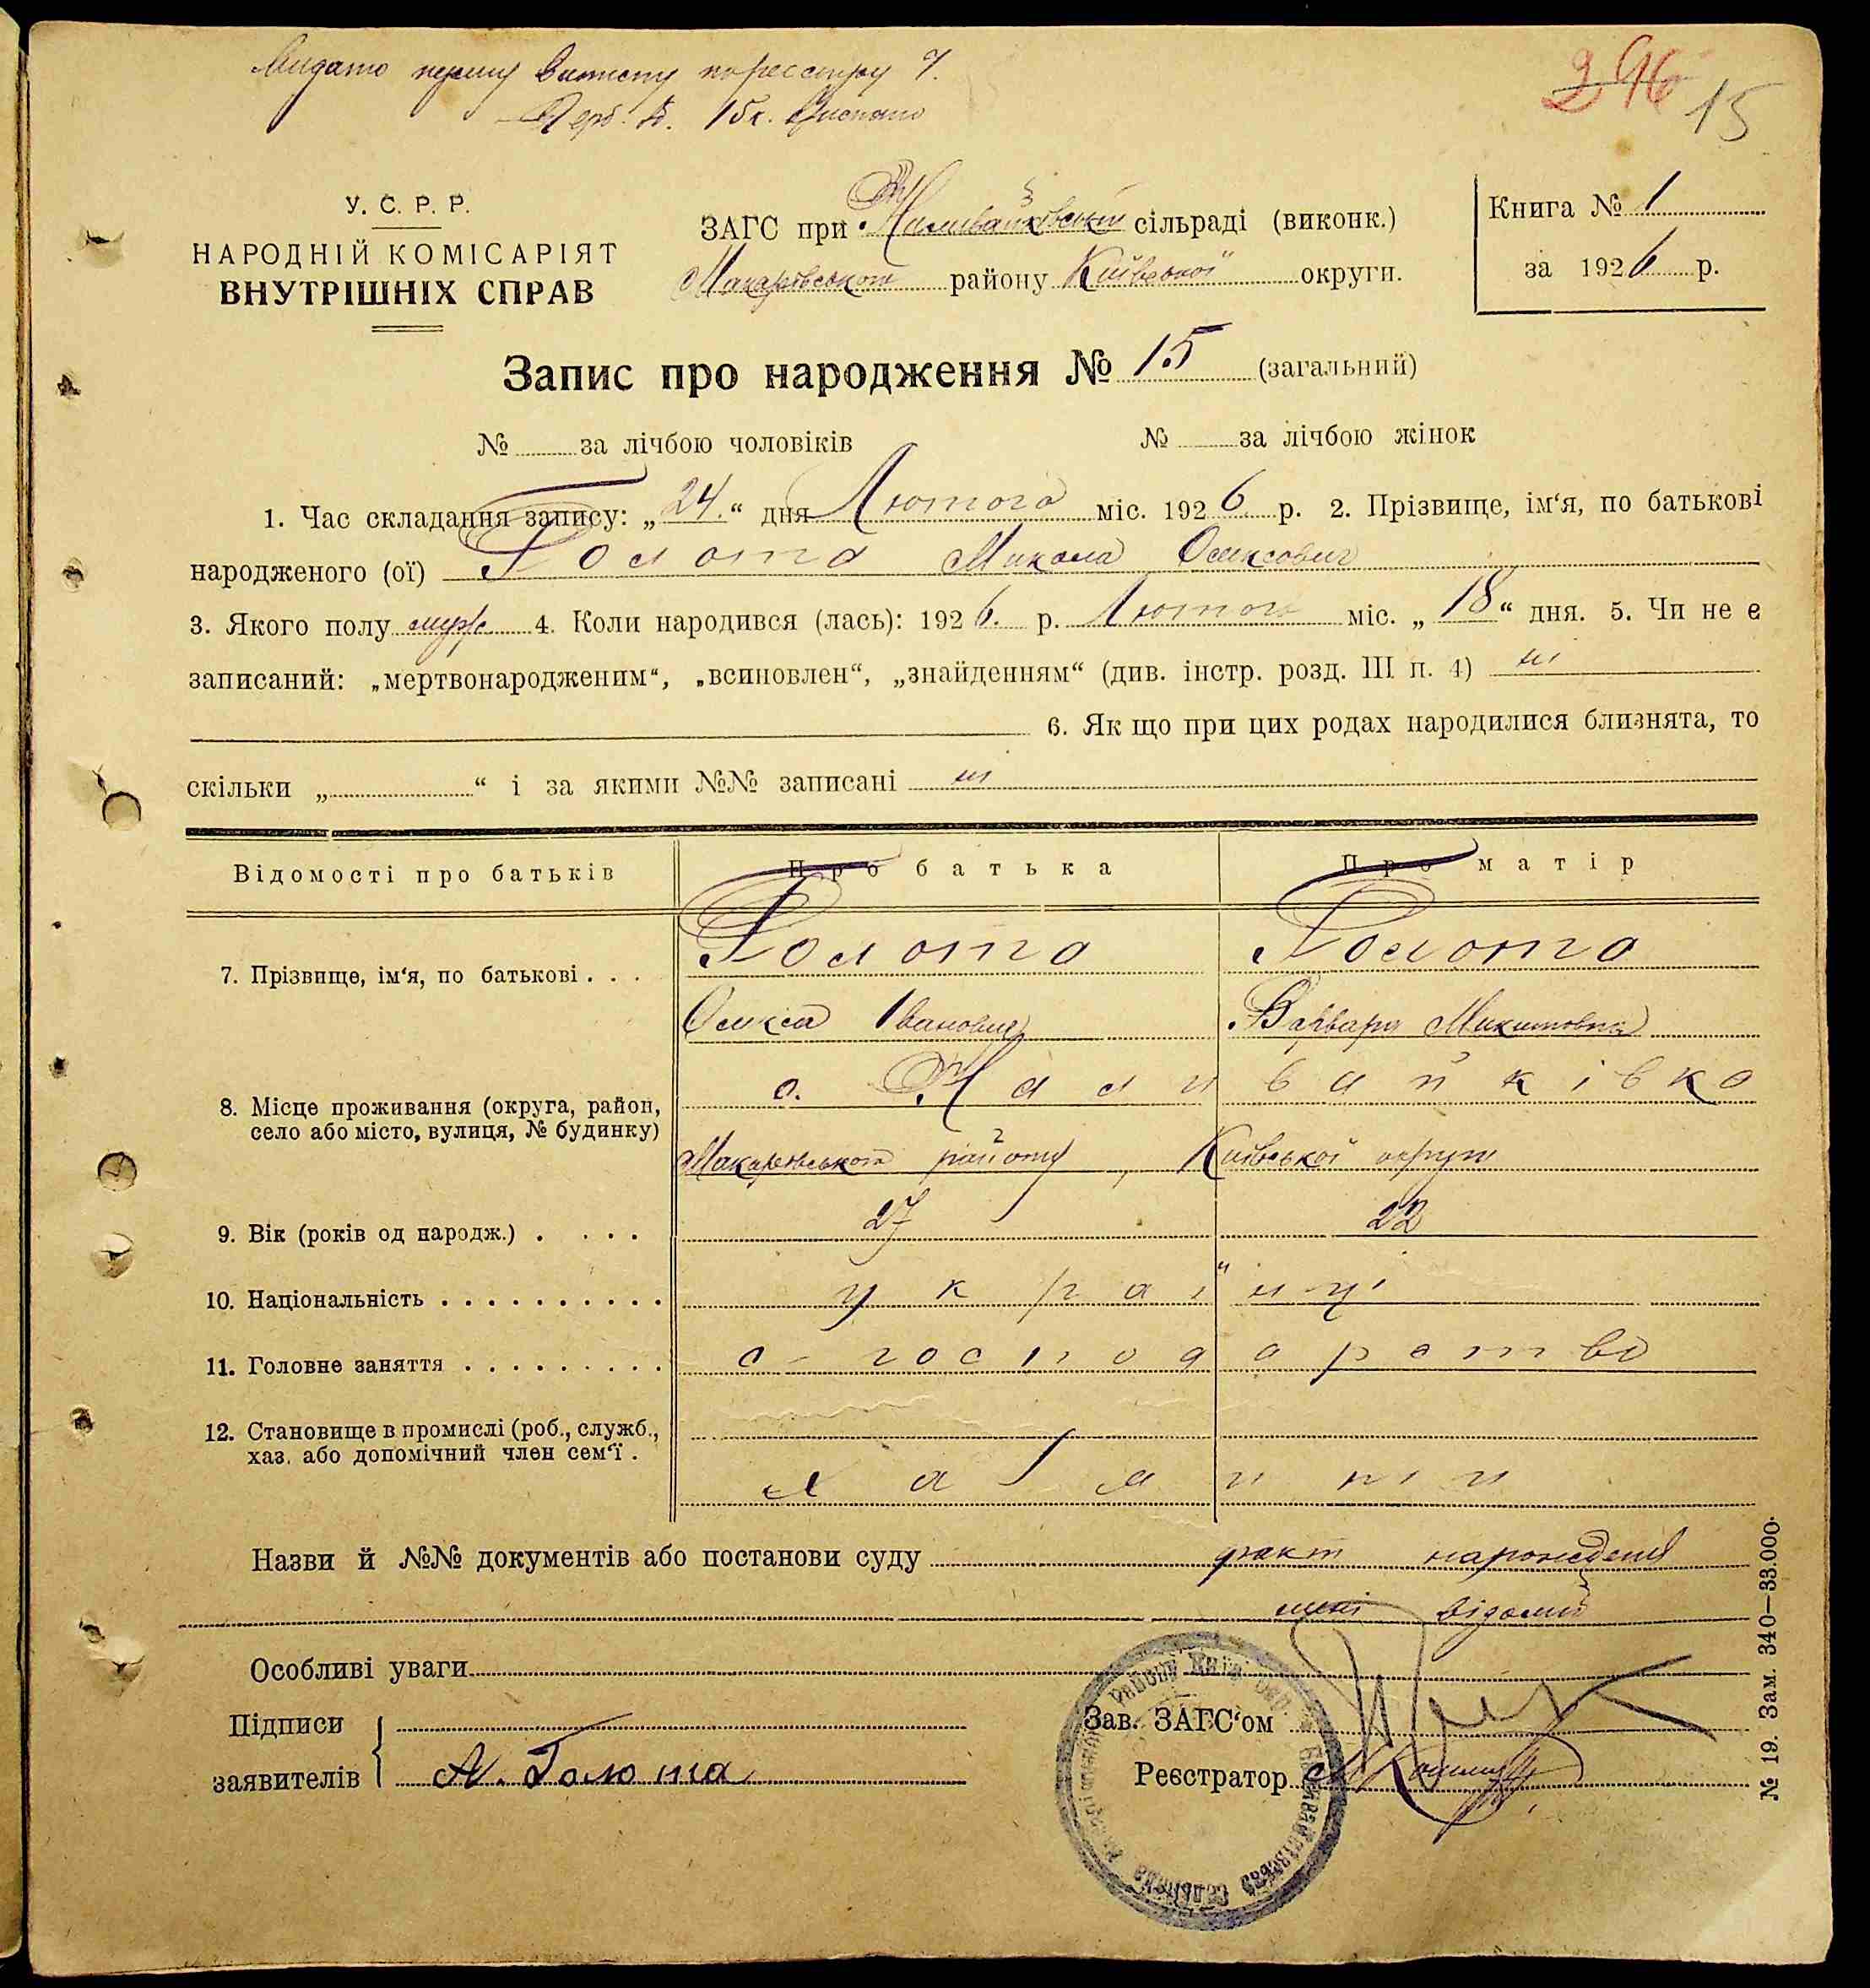 Видато першу виписку по реєстру ч.
15к.
296 15
У. С. Р. Р.
НАРОДНІЙ КОМІСАРІЯТ
ВНУТРІШНІХ СПРАВ
ЗАГС при Наливайківській сільраді (виконк.)
Макарівського району Київської округи.
Книга № 1
за 1926 р.
Запис про народження № 15 (загальний)
№ за лічбою чоловіків № за лічбою жінок
1. Час складання запису: „24.“ дня Лютого міс. 1926 р. 2. Прізвище, ім‘я, по батькові
народженого (ої) Голота Микола Олексович
3. Якого полу муж 4. Коли народився (лась): 1926. р. Лютого міс. „18“ дня. 5. Чи не є
записаний: „мертвонародженим“, „всиновлен“, „знайденням“ (див. інстр. розд. III п. 4) ні
6. Як що при цих родах народилися близнята, то
скільки „ “ і за якими №№ записані ні
Відомості про батьків Про батька Про матір
7. Прізвище, ім‘я, по батькові . . . Голота Голота
Олекса Іванович Варвара Микитовна
8. Місце проживання (округа, район, село або місто, вулиця, № будинку) с. Наливайківка
Макарівського району, Київської округи
9. Вік (років од народж.) . . . . 27 22
10. Національність . . . . . . . . . . українці
11. Головне заняття . . . . . . . . . с-господарство
12. Становище в промислі (роб., служб.,
хаз. або допомічний член сем‘ї .
хазяини
Назви й №№ документів або постанови суду факт народження
мені відомий
Особливі уваги
Підписи
заявителів О. Голота
Зав. ЗАГС‘ом
Реєстратор
№ 19. Зам. 340—33.000.